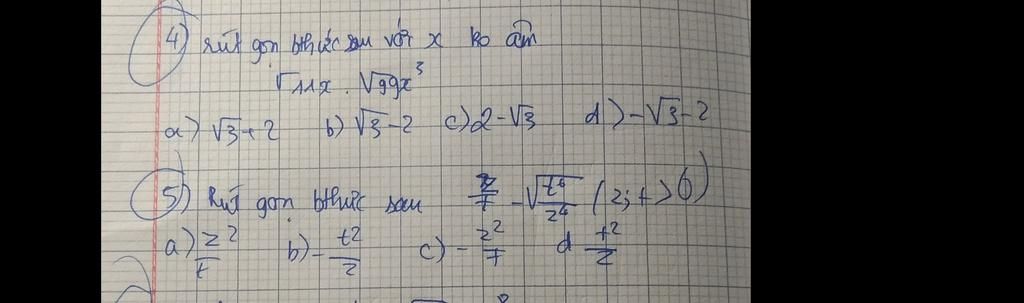 4) rút gọn bthức sau với x ko âm
√11x . √99x³
a) √3+2 b) √3-2 c) 2-√3 d) -√3-2
5) Rút gọn bthức sau z/t - √t⁶/z⁴ (z; t > 0)
a) z²/t b) - t²/z c) - z²/t d t²/z